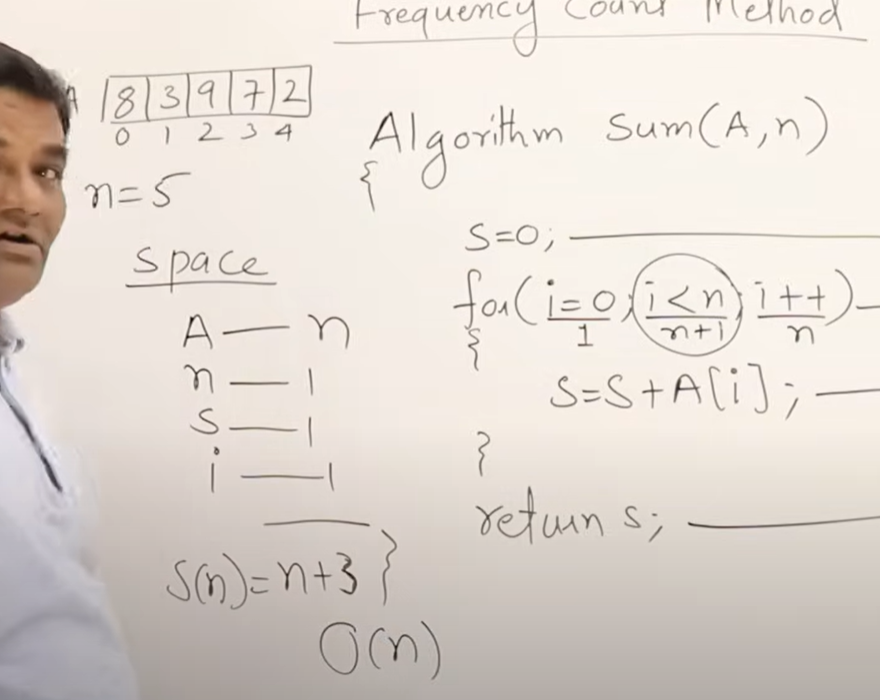 Frequency Count Method
A 8 3 9 7 2
0 1 2 3 4
n=5
space
A — n
n — 1
s — 1
i — 1
S(n)=n+3 }
O(n)
Algorithm Sum(A,n)
{
s=0;
for(i=0; i<n; i++)
1 n+1 n
{
s=s+A[i];
}
return s;